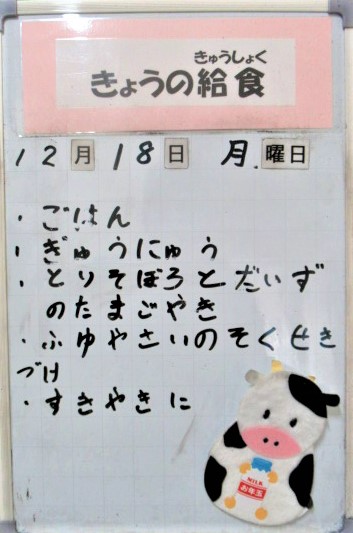 きゅうしょく
きょうの給食
12月18日 月曜日
・ごはん
・ぎゅうにゅう
・とりそぼろとだいず
のたまごやき
・ふゆやさいのそくせき
づけ
・すきやきに
MILK
お年玉